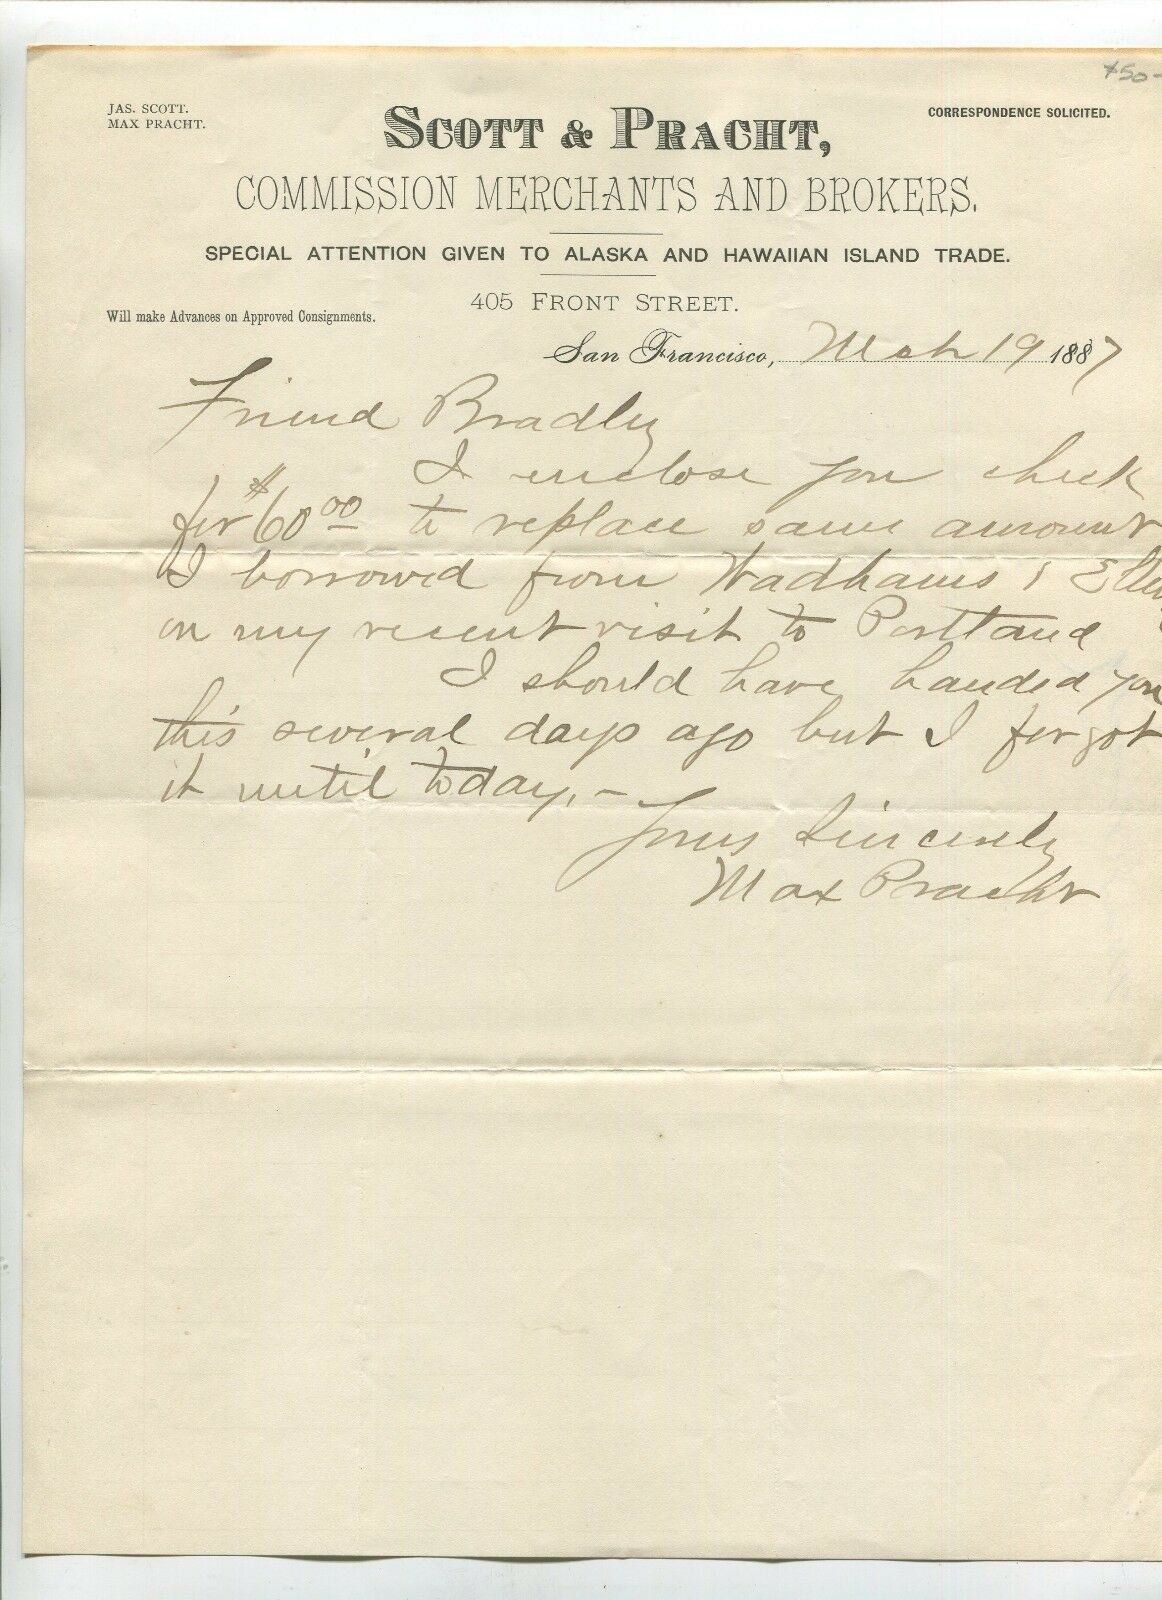 $50-
JAS. SCOTT.
MAX PRACHT.
CORRESPONDENCE SOLICITED.
SCOTT & PRACHT,
COMMISSION MERCHANTS AND BROKERS.
SPECIAL ATTENTION GIVEN TO ALASKA AND HAWAIIAN ISLAND TRADE.
405 FRONT STREET.
Will make Advances on Approved Consignments.
San Francisco, Mch 19 1887
Friend Bradley
I enclose you check
for $60 00 to replace same amount
I borrowed from Wadhams &
on my recent visit to Portland
I should have handed you
this several days ago but I forgot
it until today.-
Yours Sincerely
Max Pracht